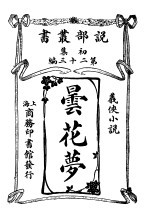 説部叢書
初集
第二十三編
義俠小説
曇花夢
上海
商務印書館發行